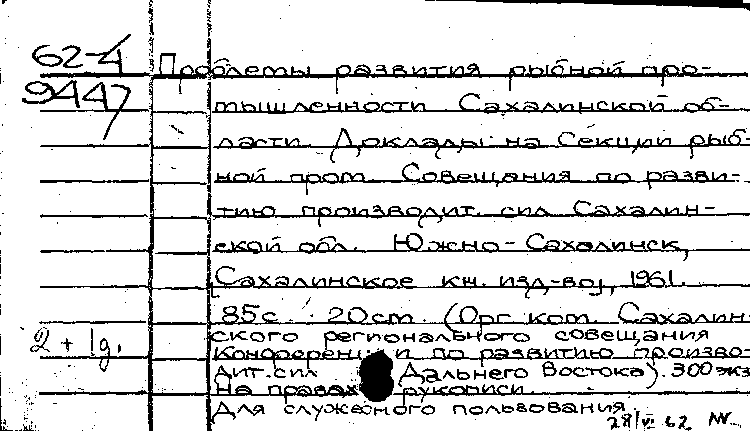 62-4
9447
Проблемы развития рыбной про-
мышленности Сахалинской об-
ласти. Доклады на Секции рыб-
ной пром. Совещания по разви-
тию производит. сил Сахалин-
ской обл. Южно-Сахалинск,
Сахалинское кн. изд-во, 1961.
85с. 20см. (Орг. ком. Сахалин-
ского регионального совещания
2 + 1д.
Конференции по развитию произво-
дит. сил Дальнего Востока). 300 экз
На правах рукописи
Для служебного пользования.
28/VI 62